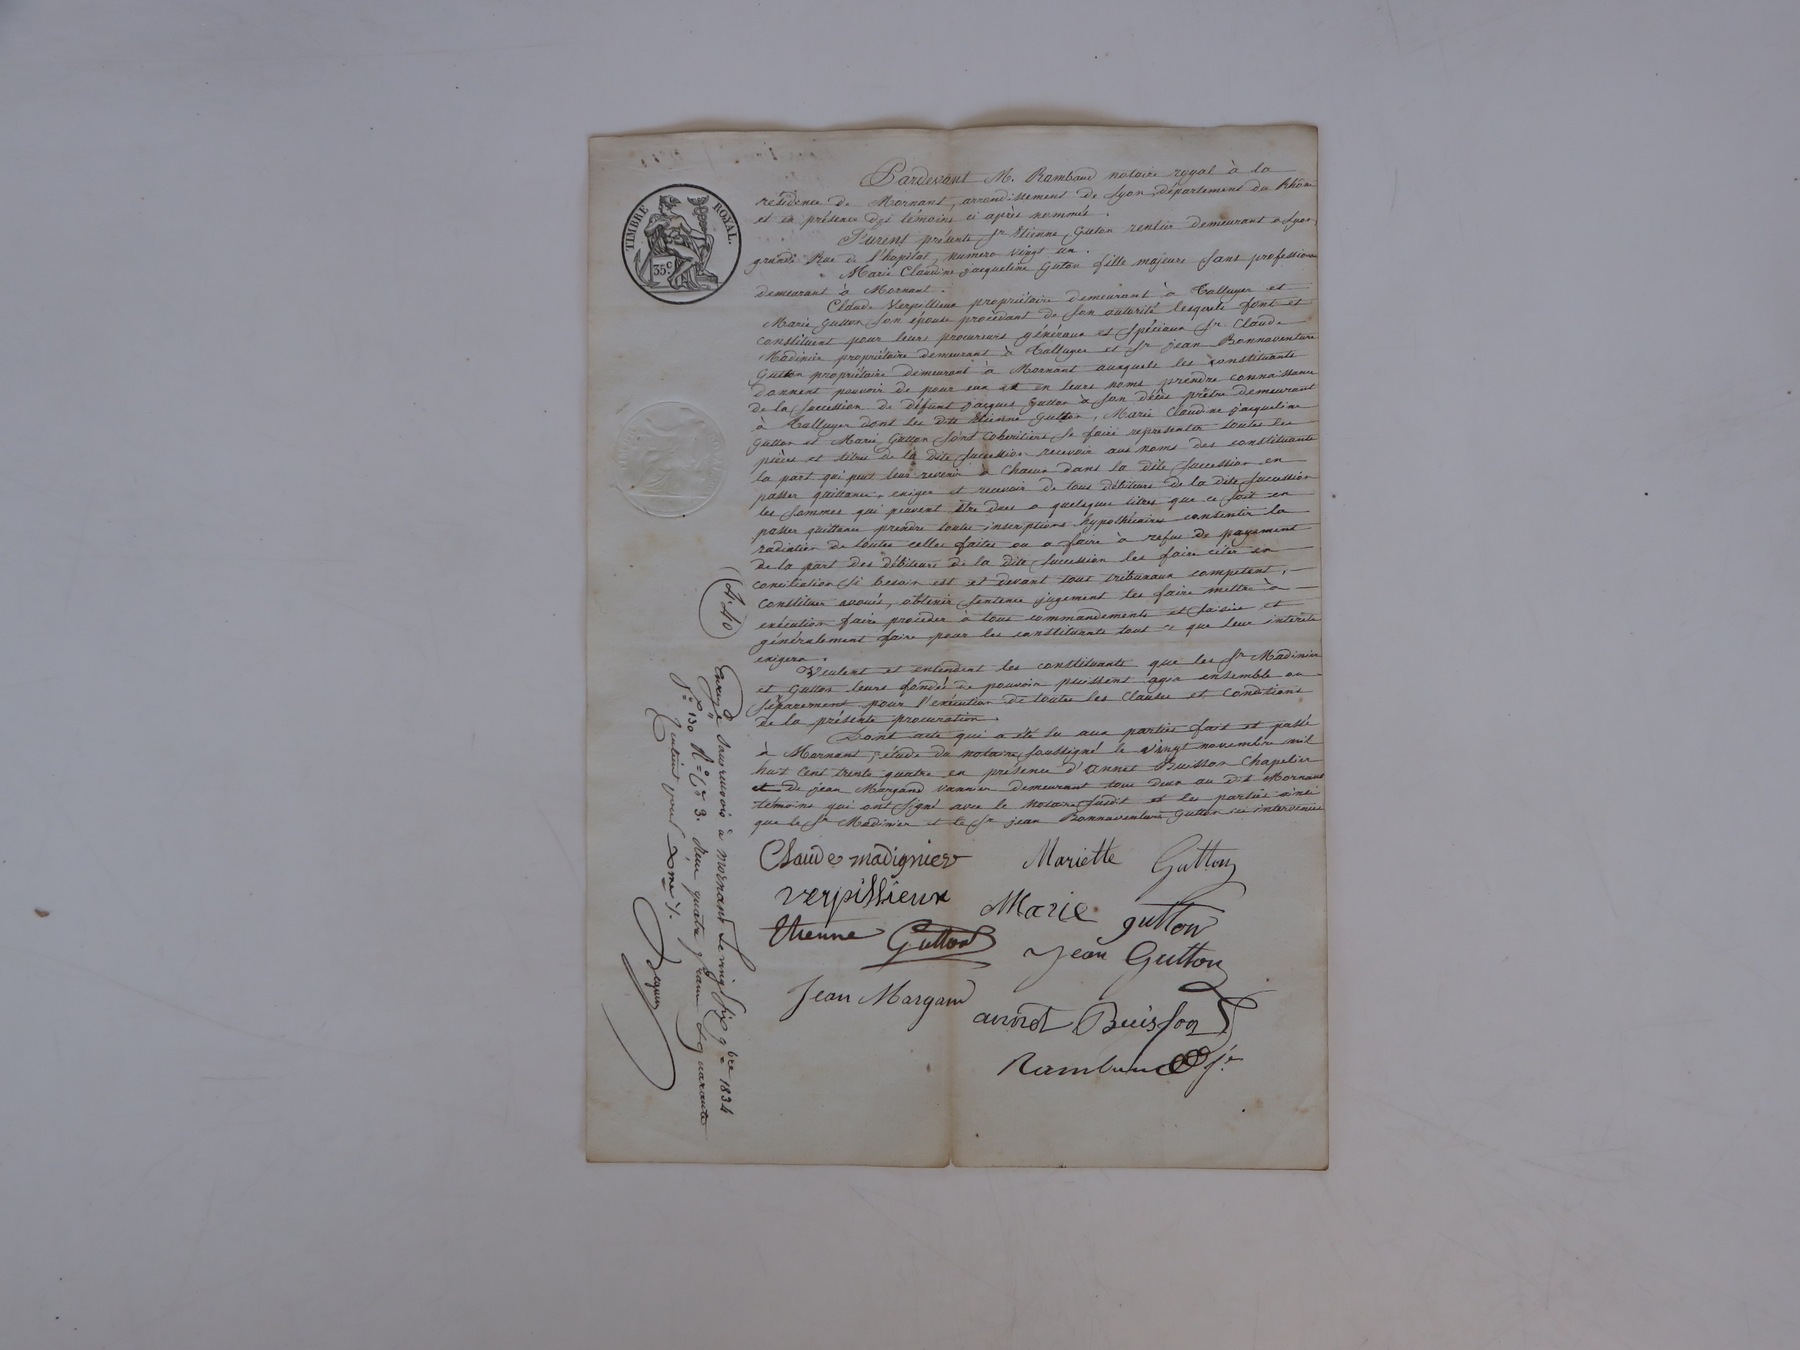 TIMBRE ROYAL.
35c
Pardevant M. Rambaud notaire royal à la
résidence de Mornant, arrondissement de Lyon, département du Rhône
et en présence des témoins ci après nommés.
Furent présents Sr. Etienne Guton rentier demeurant à Lyon,
grande Rue de l'hopital, numero vingt un.
Marie Claudine jacqueline Guton fille majeure sans profession
demeurant à Mornant.
Claude Verpillieux propriétaire demeurant à Talluyer et
Marie Gutton son épouse procédant de son autorité lesquels font et
constituent pour leurs procureurs généraux et spéciaux Sr. Claude
Madinier propriétaire demeurant à Talluyer et Sr jean Bonnaventure
Gutton propriétaire demeurant à Mornant auxquels les constituants
donnent pouvoir de pour eux et en leurs noms prendre connaissance
de la succession de défunt jacques Gutton à son décès prêtre demeurant
à Talluyer dont les dits Etienne Gutton, Marie Claudine jacqueline
Gutton et Marie Gutton sont cohéritiers se faire representer toutes les
pièces et titres de la dite succession recevoir aux noms des constituants
la part qui peut leur revenir à chacun dans la dite succession en
passer quittance, exiger et recevoir de tous débiteurs de la dite succession
les sommes qui peuvent être dues a quelques titres que ce soit en
passer quittance prendre toutes inscriptions hypothécaires consentir la
radiation de toutes celles faites ou a faire à refus de payement
de la part des débiteurs de la dite succession les faire citer en
conciliation si besoin est et devant tous tribunaux compétent,
constituer avoués, obtenir sentence jugement les faire mettre à
exécution faire procéder à tous commandements et saisies et
généralement faire pour les constituants tout ce que leur intérêts
exigera.
Veulent et entendent les constituants que les Sr Madinier
et Gutton leurs fondés de pouvoir puissent agir ensemble ou
séparement pour l'exécution de toutes les clauses et conditions
de la présente procuration.
Dont acte qui a été lu aux parties fait et passé
à Mornant, étude du notaire soussigné le vingt novembre mil
huit cent trente quatre en présence d'annet Buisson chapelier
et de jean Margand vannier demeurant tous deux au dit Mornant
témoins qui ont signé avec le notaire susdit et les parties ainsi
que le Sr Madinier et le Sr jean Bonnaventure Gutton ici intervenus
Claude madignier Mariette Gutton
verpillieux Marie gutton
Etienne Gutton Jean Gutton
Jean Margand annet Buisson
Rambaud
4.40
à mornant le ving six 9bre 1834
f° 130 R° C 3. Reçu quatre francs quarante